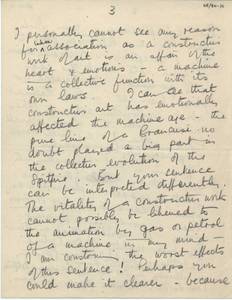 3
I personally cannot see any reason
for such association as a constructive
work of art is an affair of the
heart & emotions – a machine
is a collective function with its
own laws. I can see that
constructive art has emotionally
affected the machine age – the
pure line of a Brancusi no
doubt played a big part in
the collective evolution of the
Spitfire. But your sentence
can be interpreted differently.
The vitality of a constructive work
cannot possibly be likened to
the animation by gas or petrol
of a machine in my mind –
I am construing the worst effects
of this sentence! Perhaps you
could make it clearer – because